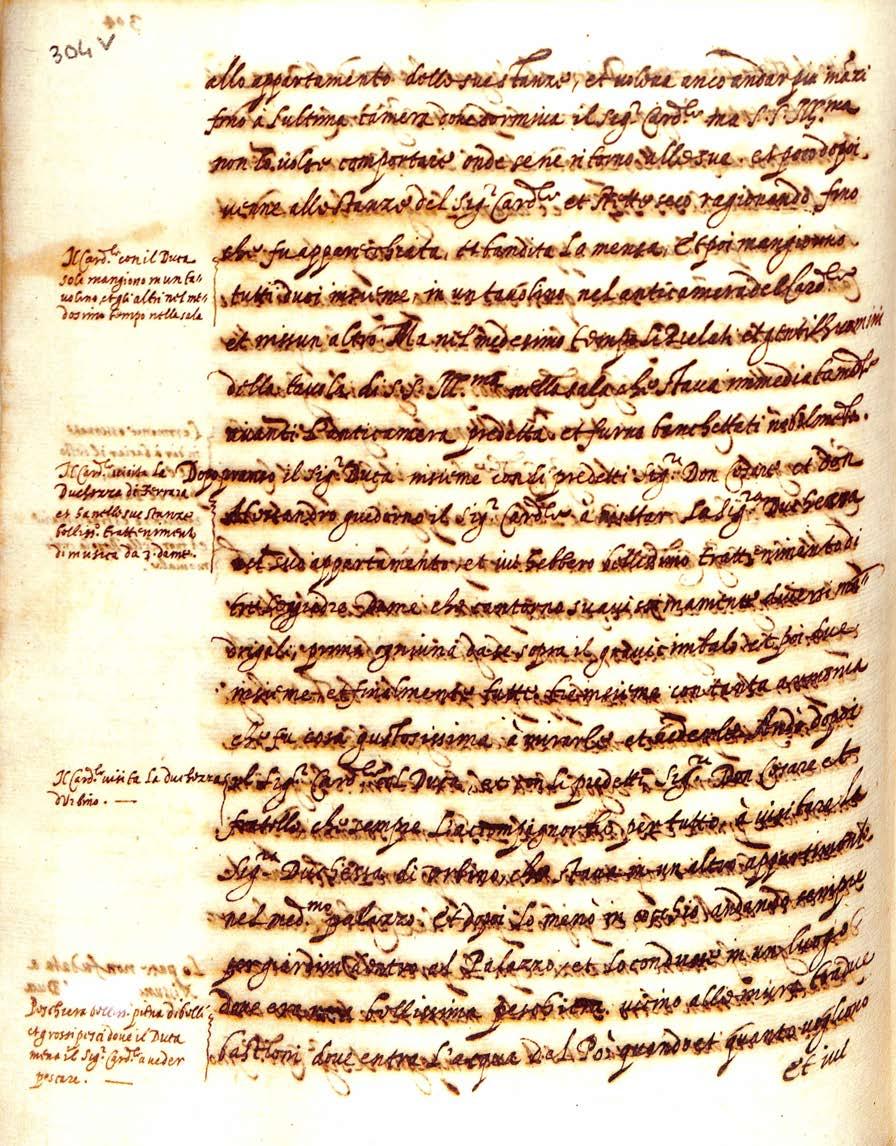 304 V
allo appartamento delle sue stanze, et voleva anco andar piu inãzi
fino à l'ultima camera dove dormiva il Sig.r Card.le ma S. S. Ill.ma
non lo volse comportare onde se ne ritornò alle sue. et poco dopoi
venne alle stanze del Sig.r Card.le et stette seco ragionando fino
che fu apparecchiata, et bandita la mensa, Et poi mangiorno
tutti duoi insieme in un tavolino nel anticamera del Card.le
et nissun altro. Ma nel medesimo tempo li Prelati et gentilhuomini
della tavola di S. S. Ill.ma nella sala che stava immediatamẽte
avanti l'anticamera predetta et furno banchettati nobilmẽte.
Dopo pranzo il Sig.r Duca insieme con li predetti Sig.ri Don Cesare et Don
Alessandro guidorno il Sig.r Card.le a visitar la Sig.ra Duchessa
nel suo appartamento et ivi hebbero bellissimo trattenimento di
tre leggiadre Dame che cantorno suavissimamente diversi ma=
drigali, prima ogniuna da se sopra il gravicimbalo et poi due
insieme, et finalmente tutte tre insieme con tanta armonia
che fu cosa gustosissima à mirarle et vederle. Andò dopoi
il Sig.r Card.le col Duca, et con li predetti Sig.ri Don Cesare et
fratello, che sempre l'accompagnorno per tutto, à visitare la
Sig.ra Duchessa di Urbino, che stava in un altro appartimento
nel med.mo palazzo. Et dopoi lo menò in cocchio andando sempre
per giardini dentro al Palazzo, et lo condusse in un luogo
dove era una bellissima peschiera vicino alle mura tra due
bastioni dove entra l'acqua del Pò quando et quanto vogliono
et ivi
Il Card.le con il Duca
soli mangiono in un ta=
volino, et gli altri nel me=
desimo tempo nella sala
Il Card.le visita la
Duchezza di Ferrara
et ha nelle sue stanze
belliss.o trattenimento
di musica da 3. dame.
Il Card.le visita la duchezza
d'Urbino.
Peschiera belliss.a piena di belli
et grossi pesci dove il Duca
mena il Sig.r Card.le a veder
pescare.